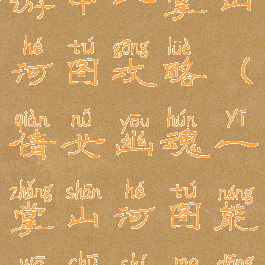 游中一掌山
hé tú gōng lüè
河图攻略（
qiàn nǚ yōu hún yī
倩女幽魂一
zhǎng shān hé tú néng
掌山河图能